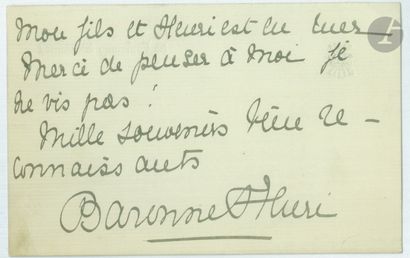 Mon fils et Henri est en mer
Merci de penser à moi je
ne vis pas !
Mille souvenirs bien re-
connaissants
Baronne Henri